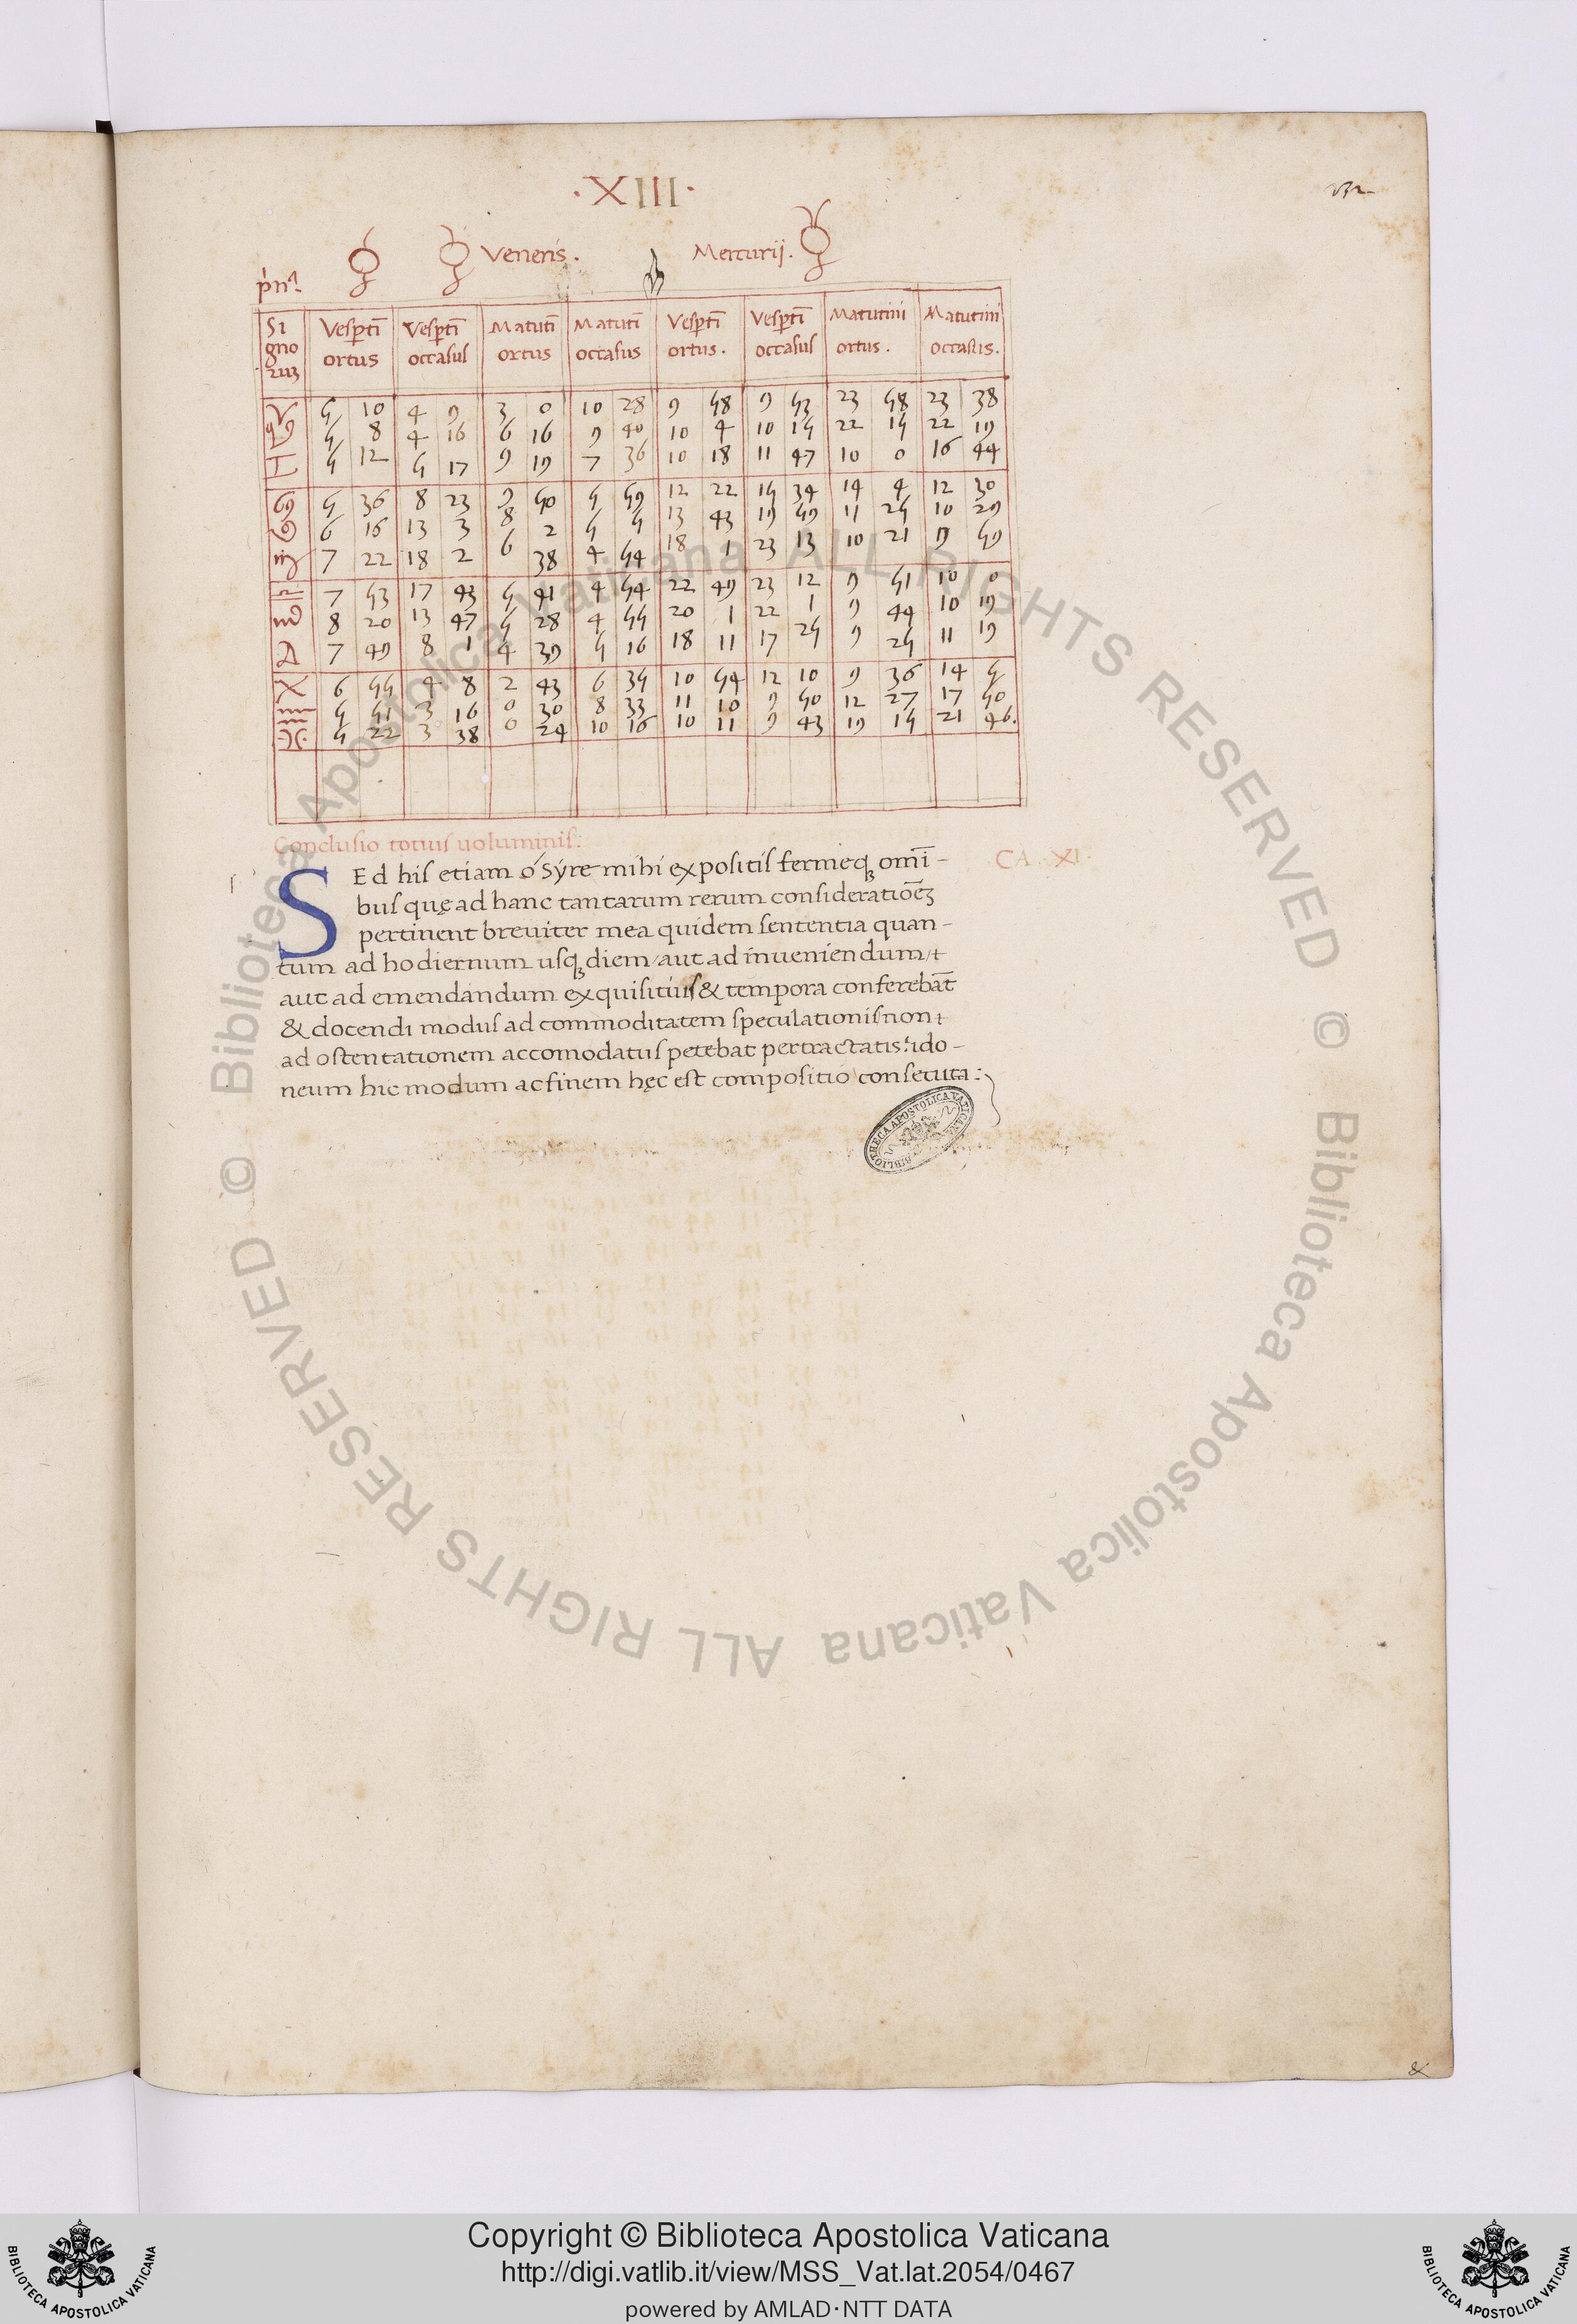 ·XIII·
♀ ♀ Veneris. Mercurij. ☿
Si Vesp̱tī Vesp̱tī Matutī Matutī Vesp̱tī Vesp̱tī Matutini Matutini
gno ortus occasus ortus occasus ortus. occasus ortus. occasus.
ruꝫ
♈ 5 10 4 9 3 0 10 28 9 58 9 53 23 58 23 38
♉ 5 8 4 16 6 16 9 40 10 4 10 15 22 15 22 19
♊ 5 12 5 17 9 19 7 36 10 18 11 47 10 0 16 44
♋ 5 36 8 23 9 50 5 59 12 22 15 34 14 4 12 30
♌ 6 16 13 3 8 2 5 5 13 43 19 59 11 25 10 29
♍ 7 22 18 2 6 38 4 54 18 1 23 13 10 21 9 59
♎ 7 53 17 43 5 41 4 54 22 49 23 12 9 51 10 0
♏ 8 20 13 47 5 28 4 55 20 1 22 1 9 44 10 19
♐ 7 49 8 1 4 39 5 16 18 11 17 25 9 25 11 19
♑ 6 55 4 8 2 43 6 35 10 54 12 10 9 36 14 5
♒ 5 51 3 16 0 30 8 33 11 10 9 50 12 27 17 50
♓ 5 22 3 38 0 24 10 16 10 11 9 43 19 15 21 46.
Conclusio totius uoluminis:
SEd his etiam ó Sýre mihi expositis fermeqꝫ omī- CA. XI.
bus quę ad hanc tantarum rerum consideratiōeꝫ
pertinent breuiter mea quidem sententia quan-
tum ad hodiernum usqꝫ diem aut ad inueniendum
aut ad emendandum exquisitius & tempora conferebāt
& docendi modus ad commoditatem speculationis non
ad ostentationem accomodatus petebat pertractatis: ido-
neum hic modum ac finem hęc est compositio consecuta:
BIBLIOTHECA APOSTOLICA VATICANA
© Biblioteca Apostolica Vaticana ALL RIGHTS RESERVED © Biblioteca Apostolica Vaticana ALL RIGHTS RESERVED
Copyright © Biblioteca Apostolica Vaticana
http://digi.vatlib.it/view/MSS_Vat.lat.2054/0467
powered by AMLAD·NTT DATA
BIBLIOTECA APOSTOLICA VATICANA
BIBLIOTECA APOSTOLICA VATICANA